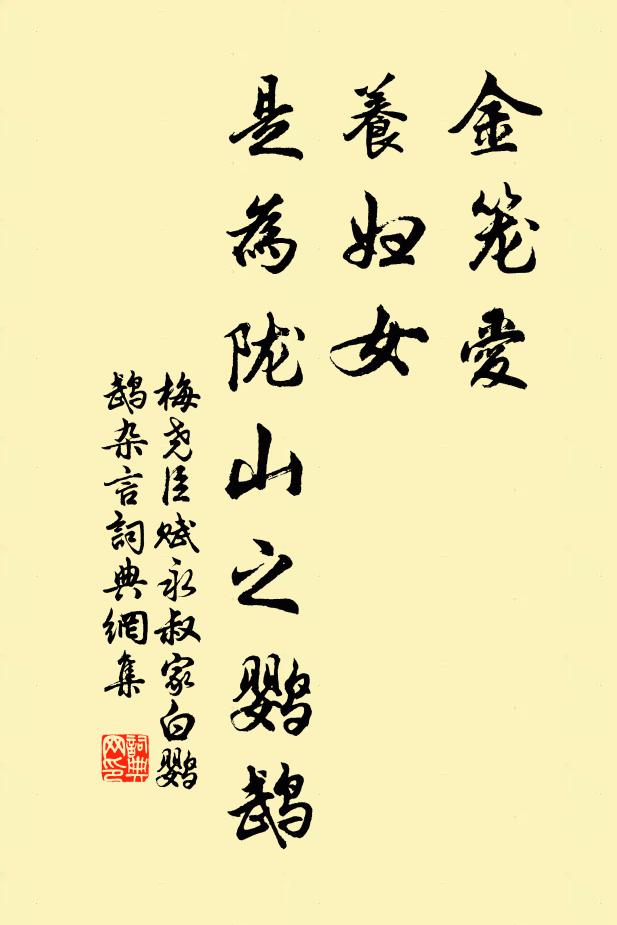 金笼爱
養妇女
是為陇山之鹦鹉
梅尧臣赋永叔家白鹦
鹉杂言詞典網集
詞典
网印